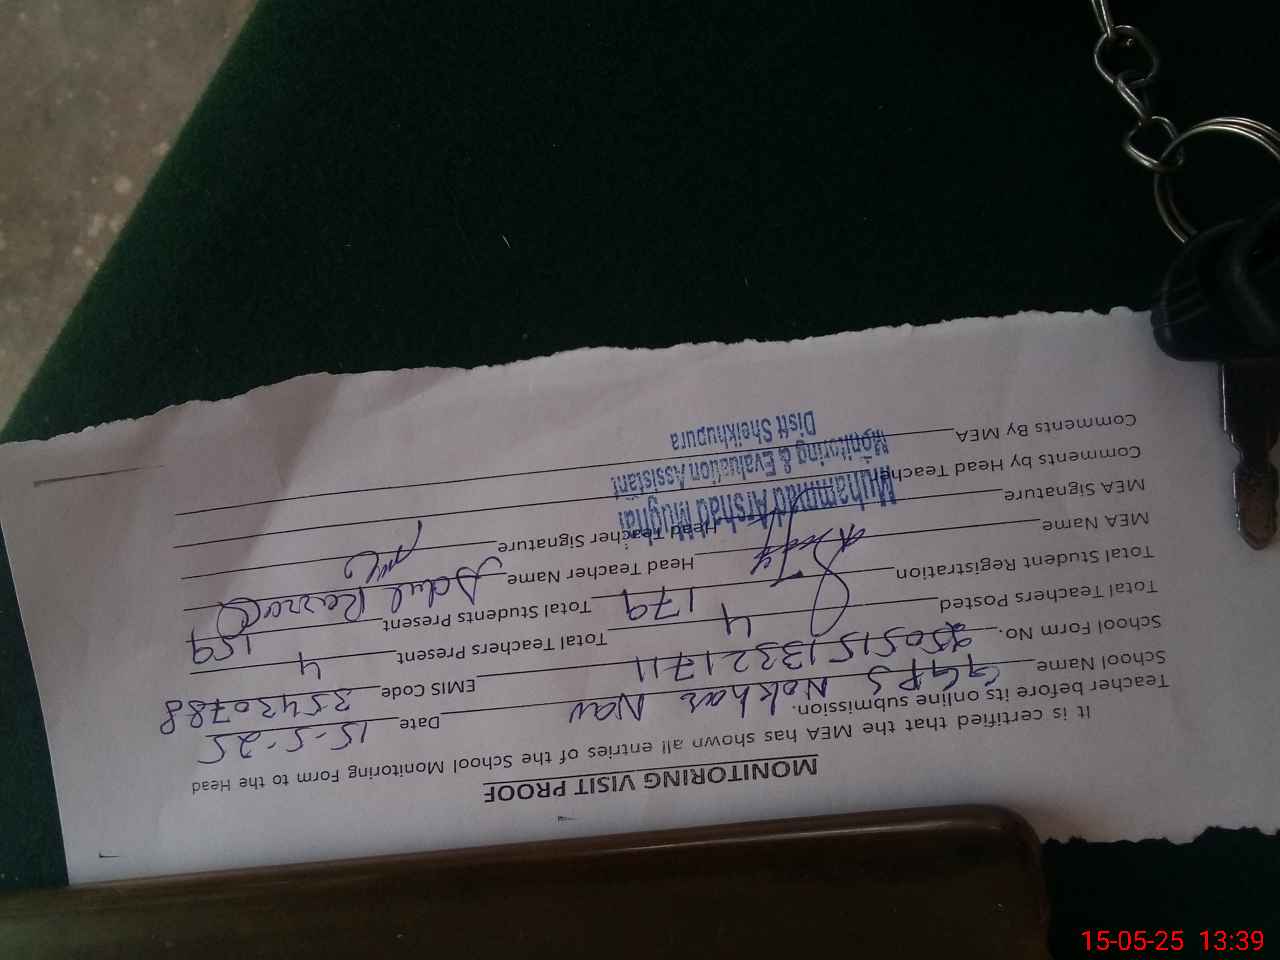 MONITORING VISIT PROOF
It is certified that the MEA has shown all entries of the School Monitoring Form to the Head
Teacher before its online submission.
School Name GGPS Nokhar Naw Date 15-5-25
School Form No. 25051513321711 EMIS Code 35430788
Total Teachers Posted 4 Total Teachers Present 4
Total Student Registration 179 Total Students Present 159
MEA Name Head Teacher Name Abdul Razzaq
MEA Signature Head Teacher Signature
Comments by Head Teacher
Comments By MEA
Muhammad Arshad Mughal
Monitoring & Evaluation Assistant
Distt Sheikhupura
15-05-25 13:39